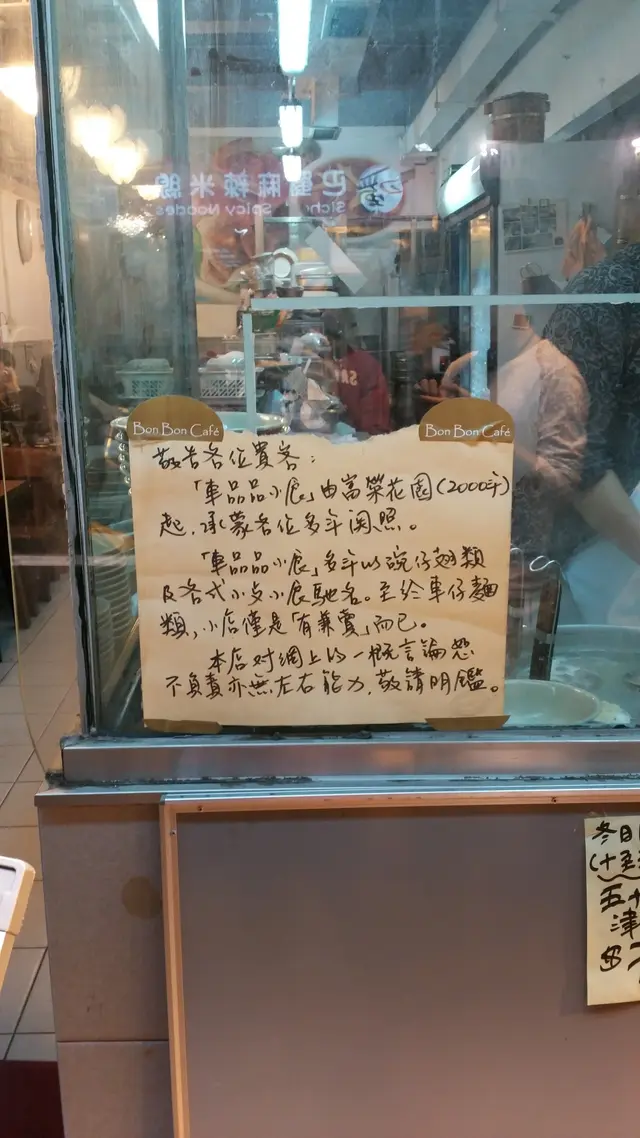 巴蜀麻辣米線
Spicy Noodles
Bon Bon Café
Bon Bon Café
敬告各位貴客：
「車品品小展」由富榮花園(2000年)
起，承蒙各位多年関照。
「車品品小展」多年以碗仔翅類
及各式小点小展馳名。至於車仔麵
類，小店僅是「有兼賣」而已。
本店对網上的一概言論恕
不負責亦無左右能力，敬請明鑑。
冬日
五十
津
$